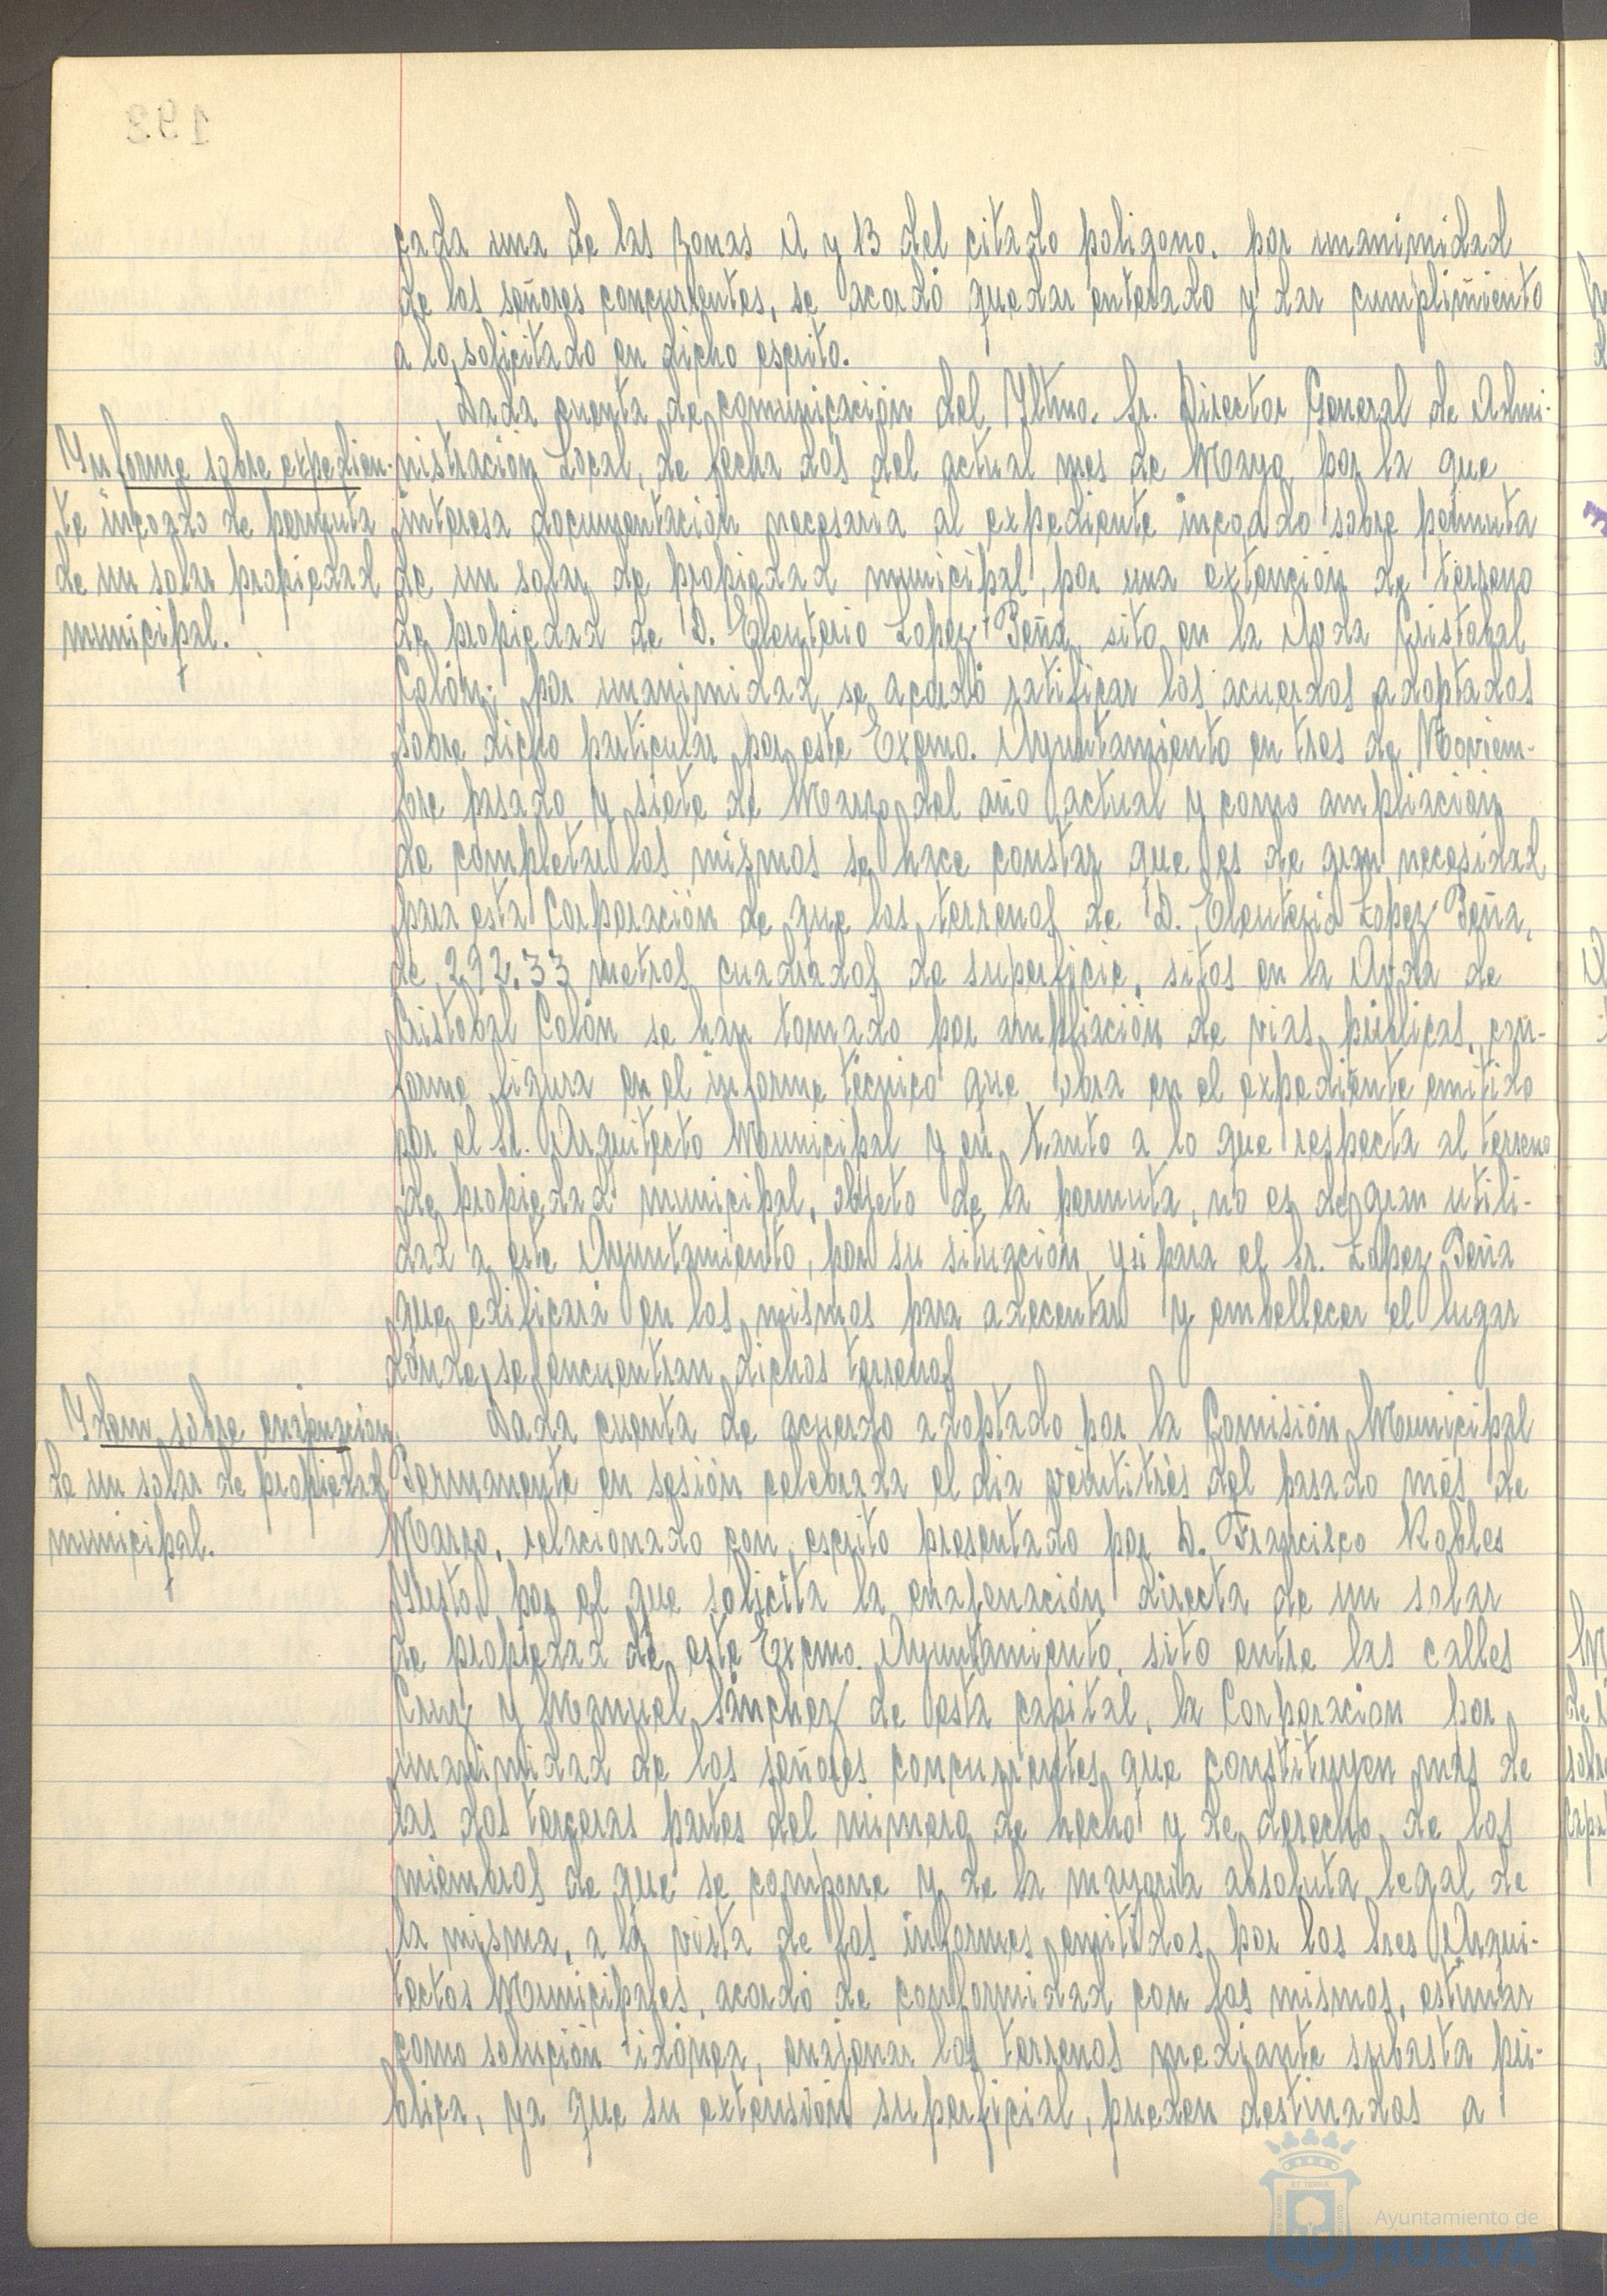 cada una de las zonas A y B del citado poligono. por unanimidad
de los señores concurrentes, se acordó quedar enterado y dar cumplimiento
a lo solicitado en dicho escrito.
Dada cuenta de comunicación del Yltmo. Sr. Director General de Admi-
Ynforme sobre expedien-
te incoado de permuta
de un solar propiedad
municipal.
nistración Local, de fecha dos del actual mes de Mayo por la que
interesa documentación necesaria al expediente incoado sobre permuta
de un solar de propiedad municipal, por una extención de terreno
de propiedad de D. Eleuterio Lopez Peña, sito en la Avda Cristobal
Colón; por unanimidad se acordó ratificar los acuerdos adoptados
sobre dicho particular por este Excmo. Ayuntamiento en tres de Noviem-
bre pasado y siete de Marzo del año actual y como ampliación
de completar los mismos se hace constar que es de gran necesidad
para esta Corporación de que los terrenos de D. Eleuterio Lopez Peña,
de 292,33 metros cuadrados de superficie, sitos en la Avda de
Cristobal Colón se han tomado por ampliación de vias públicas, con-
forme figura en el informe técnico que obra en el expediente emitido
por el Sr. Arquitecto Municipal y en tanto a lo que respecta al terreno
de propiedad municipal, objeto de la permuta, no es de gran utili-
dad a este Ayuntamiento, por su situación y si para el Sr. Lopez Peña
que edificará en los mismos para adecentar y embellecer el lugar
donde se encuentran dichos terrenos
Ydem sobre enajenacion
de un solar de propiedad
municipal.
Dada cuenta de acuerdo adoptado por la Comisión Municipal
Permanente en sesión celebrada el dia veintitrés del pasado més de
Marzo, relacionado con escrito presentado por D. Francisco Robles
Justo, por el que solicita la enajenación directa de un solar
de propiedad de este Excmo. Ayuntamiento, sito entre las calles
Cruz y Manuel Sánchez de esta capital, la Corporacion por
unanimidad de los señores concurrentes que constituyen más de
las dos terceras partes del número de hecho y de derecho de los
miembros de que se compone y de la mayoria absoluta legal de
la misma, a la vista de los informes emitidos por los Sres Arqui-
tectos Municipales, acordó de conformidad con los mismos, estimar
como solución idónea, enajenar los terrenos mediante subasta pú-
blica, ya que su extensión superficial, pueden destinados a
Ayuntamiento de
HUELVA